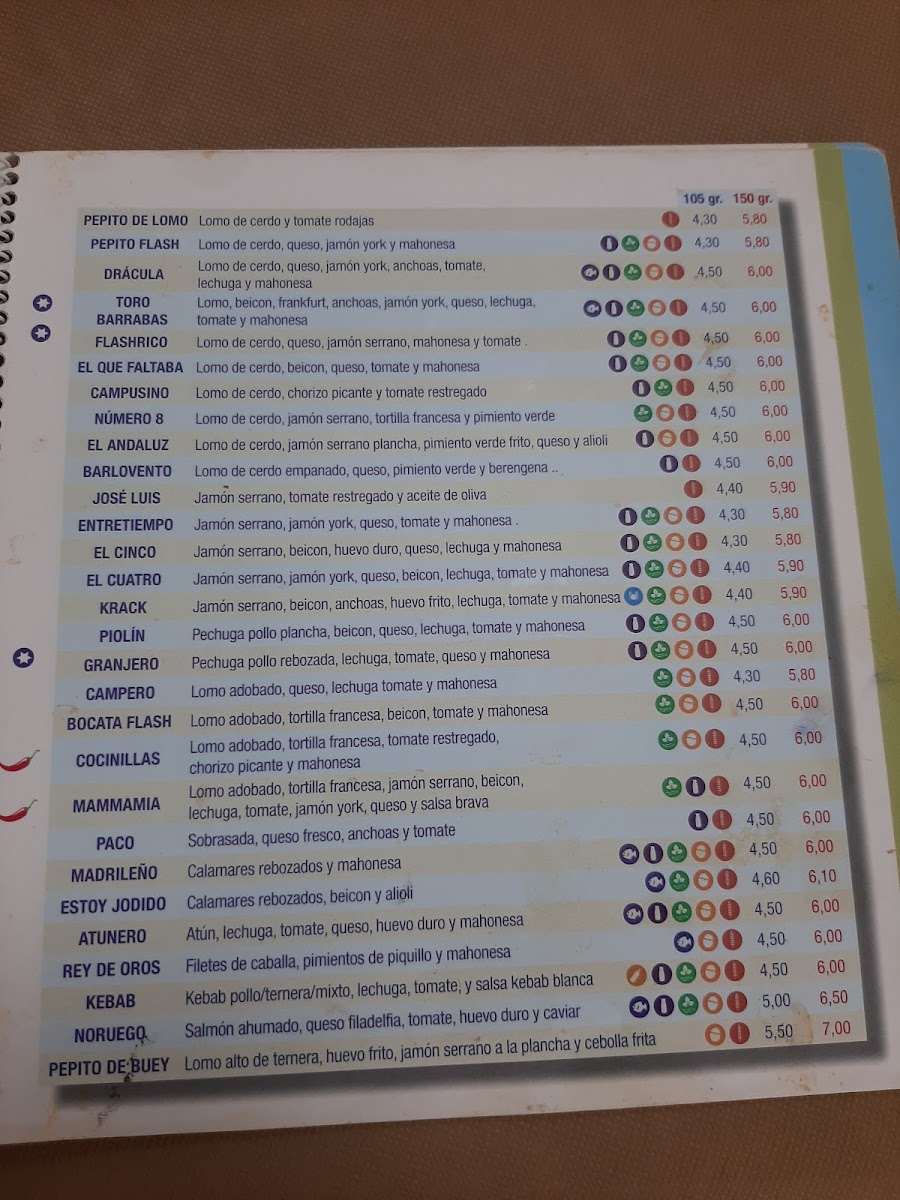 105 gr. 150 gr.
PEPITO DE LOMO Lomo de cerdo y tomate rodajas 4,30 5,80
PEPITO FLASH Lomo de cerdo, queso, jamón york y mahonesa 4,30 5,80
DRÁCULA Lomo de cerdo, queso, jamón york, anchoas, tomate, 4,50 6,00
lechuga y mahonesa
TORO BARRABAS Lomo, beicon, frankfurt, anchoas, jamón york, queso, lechuga, 4,50 6,00
tomate y mahonesa
FLASHRICO Lomo de cerdo, queso, jamón serrano, mahonesa y tomate . 4,50 6,00
EL QUE FALTABA Lomo de cerdo, beicon, queso, tomate y mahonesa 4,50 6,00
CAMPUSINO Lomo de cerdo, chorizo picante y tomate restregado 4,50 6,00
NÚMERO 8 Lomo de cerdo, jamón serrano, tortilla francesa y pimiento verde 4,50 6,00
EL ANDALUZ Lomo de cerdo, jamón serrano plancha, pimiento verde frito, queso y alioli 4,50 6,00
BARLOVENTO Lomo de cerdo empanado, queso, pimiento verde y berengena .. 4,50 6,00
JOSÉ LUIS Jamón serrano, tomate restregado y aceite de oliva 4,40 5,90
ENTRETIEMPO Jamón serrano, jamón york, queso, tomate y mahonesa . 4,30 5,80
EL CINCO Jamón serrano, beicon, huevo duro, queso, lechuga y mahonesa 4,30 5,80
EL CUATRO Jamón serrano, jamón york, queso, beicon, lechuga, tomate y mahonesa 4,40 5,90
KRACK Jamón serrano, beicon, anchoas, huevo frito, lechuga, tomate y mahonesa 4,40 5,90
PIOLÍN Pechuga pollo plancha, beicon, queso, lechuga, tomate y mahonesa 4,50 6,00
GRANJERO Pechuga pollo rebozada, lechuga, tomate, queso y mahonesa 4,50 6,00
CAMPERO Lomo adobado, queso, lechuga tomate y mahonesa 4,30 5,80
BOCATA FLASH Lomo adobado, tortilla francesa, beicon, tomate y mahonesa 4,50 6,00
COCINILLAS Lomo adobado, tortilla francesa, tomate restregado, 4,50 6,00
chorizo picante y mahonesa
MAMMAMIA Lomo adobado, tortilla francesa, jamón serrano, beicon, 4,50 6,00
lechuga, tomate, jamón york, queso y salsa brava
PACO Sobrasada, queso fresco, anchoas y tomate 4,50 6,00
MADRILEÑO Calamares rebozados y mahonesa 4,50 6,00
ESTOY JODIDO Calamares rebozados, beicon y alioli 4,60 6,10
ATUNERO Atún, lechuga, tomate, queso, huevo duro y mahonesa 4,50 6,00
REY DE OROS Filetes de caballa, pimientos de piquillo y mahonesa 4,50 6,00
KEBAB Kebab pollo/ternera/mixto, lechuga, tomate, y salsa kebab blanca 4,50 6,00
NORUEGO Salmón ahumado, queso filadelfia, tomate, huevo duro y caviar 5,00 6,50
PEPITO DE BUEY Lomo alto de ternera, huevo frito, jamón serrano a la plancha y cebolla frita 5,50 7,00